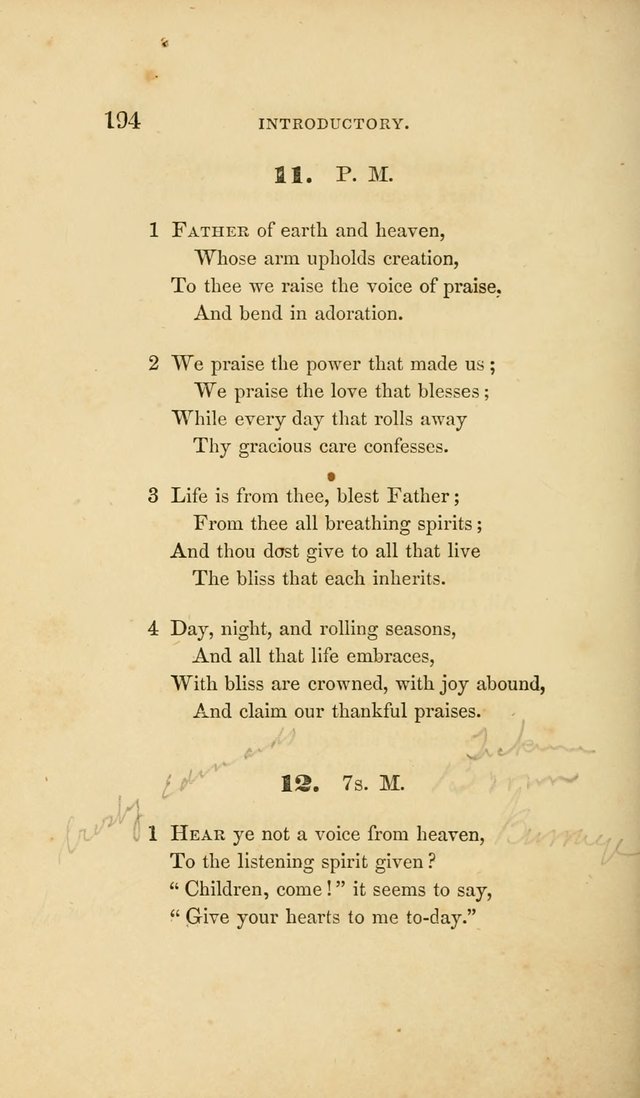 194 INTRODUCTORY.
11. P. M.
1 FATHER of earth and heaven,
Whose arm upholds creation,
To thee we raise the voice of praise,
And bend in adoration.
2 We praise the power that made us;
We praise the love that blesses;
While every day that rolls away
Thy gracious care confesses.
3 Life is from thee, blest Father;
From thee all breathing spirits;
And thou dost give to all that live
The bliss that each inherits.
4 Day, night, and rolling seasons,
And all that life embraces,
With bliss are crowned, with joy abound,
And claim our thankful praises.
Crosby Edwards
12. 7s. M.
Brown
1 HEAR ye not a voice from heaven,
To the listening spirit given?
“ Children, come!” it seems to say,
“ Give your hearts to me to-day.”